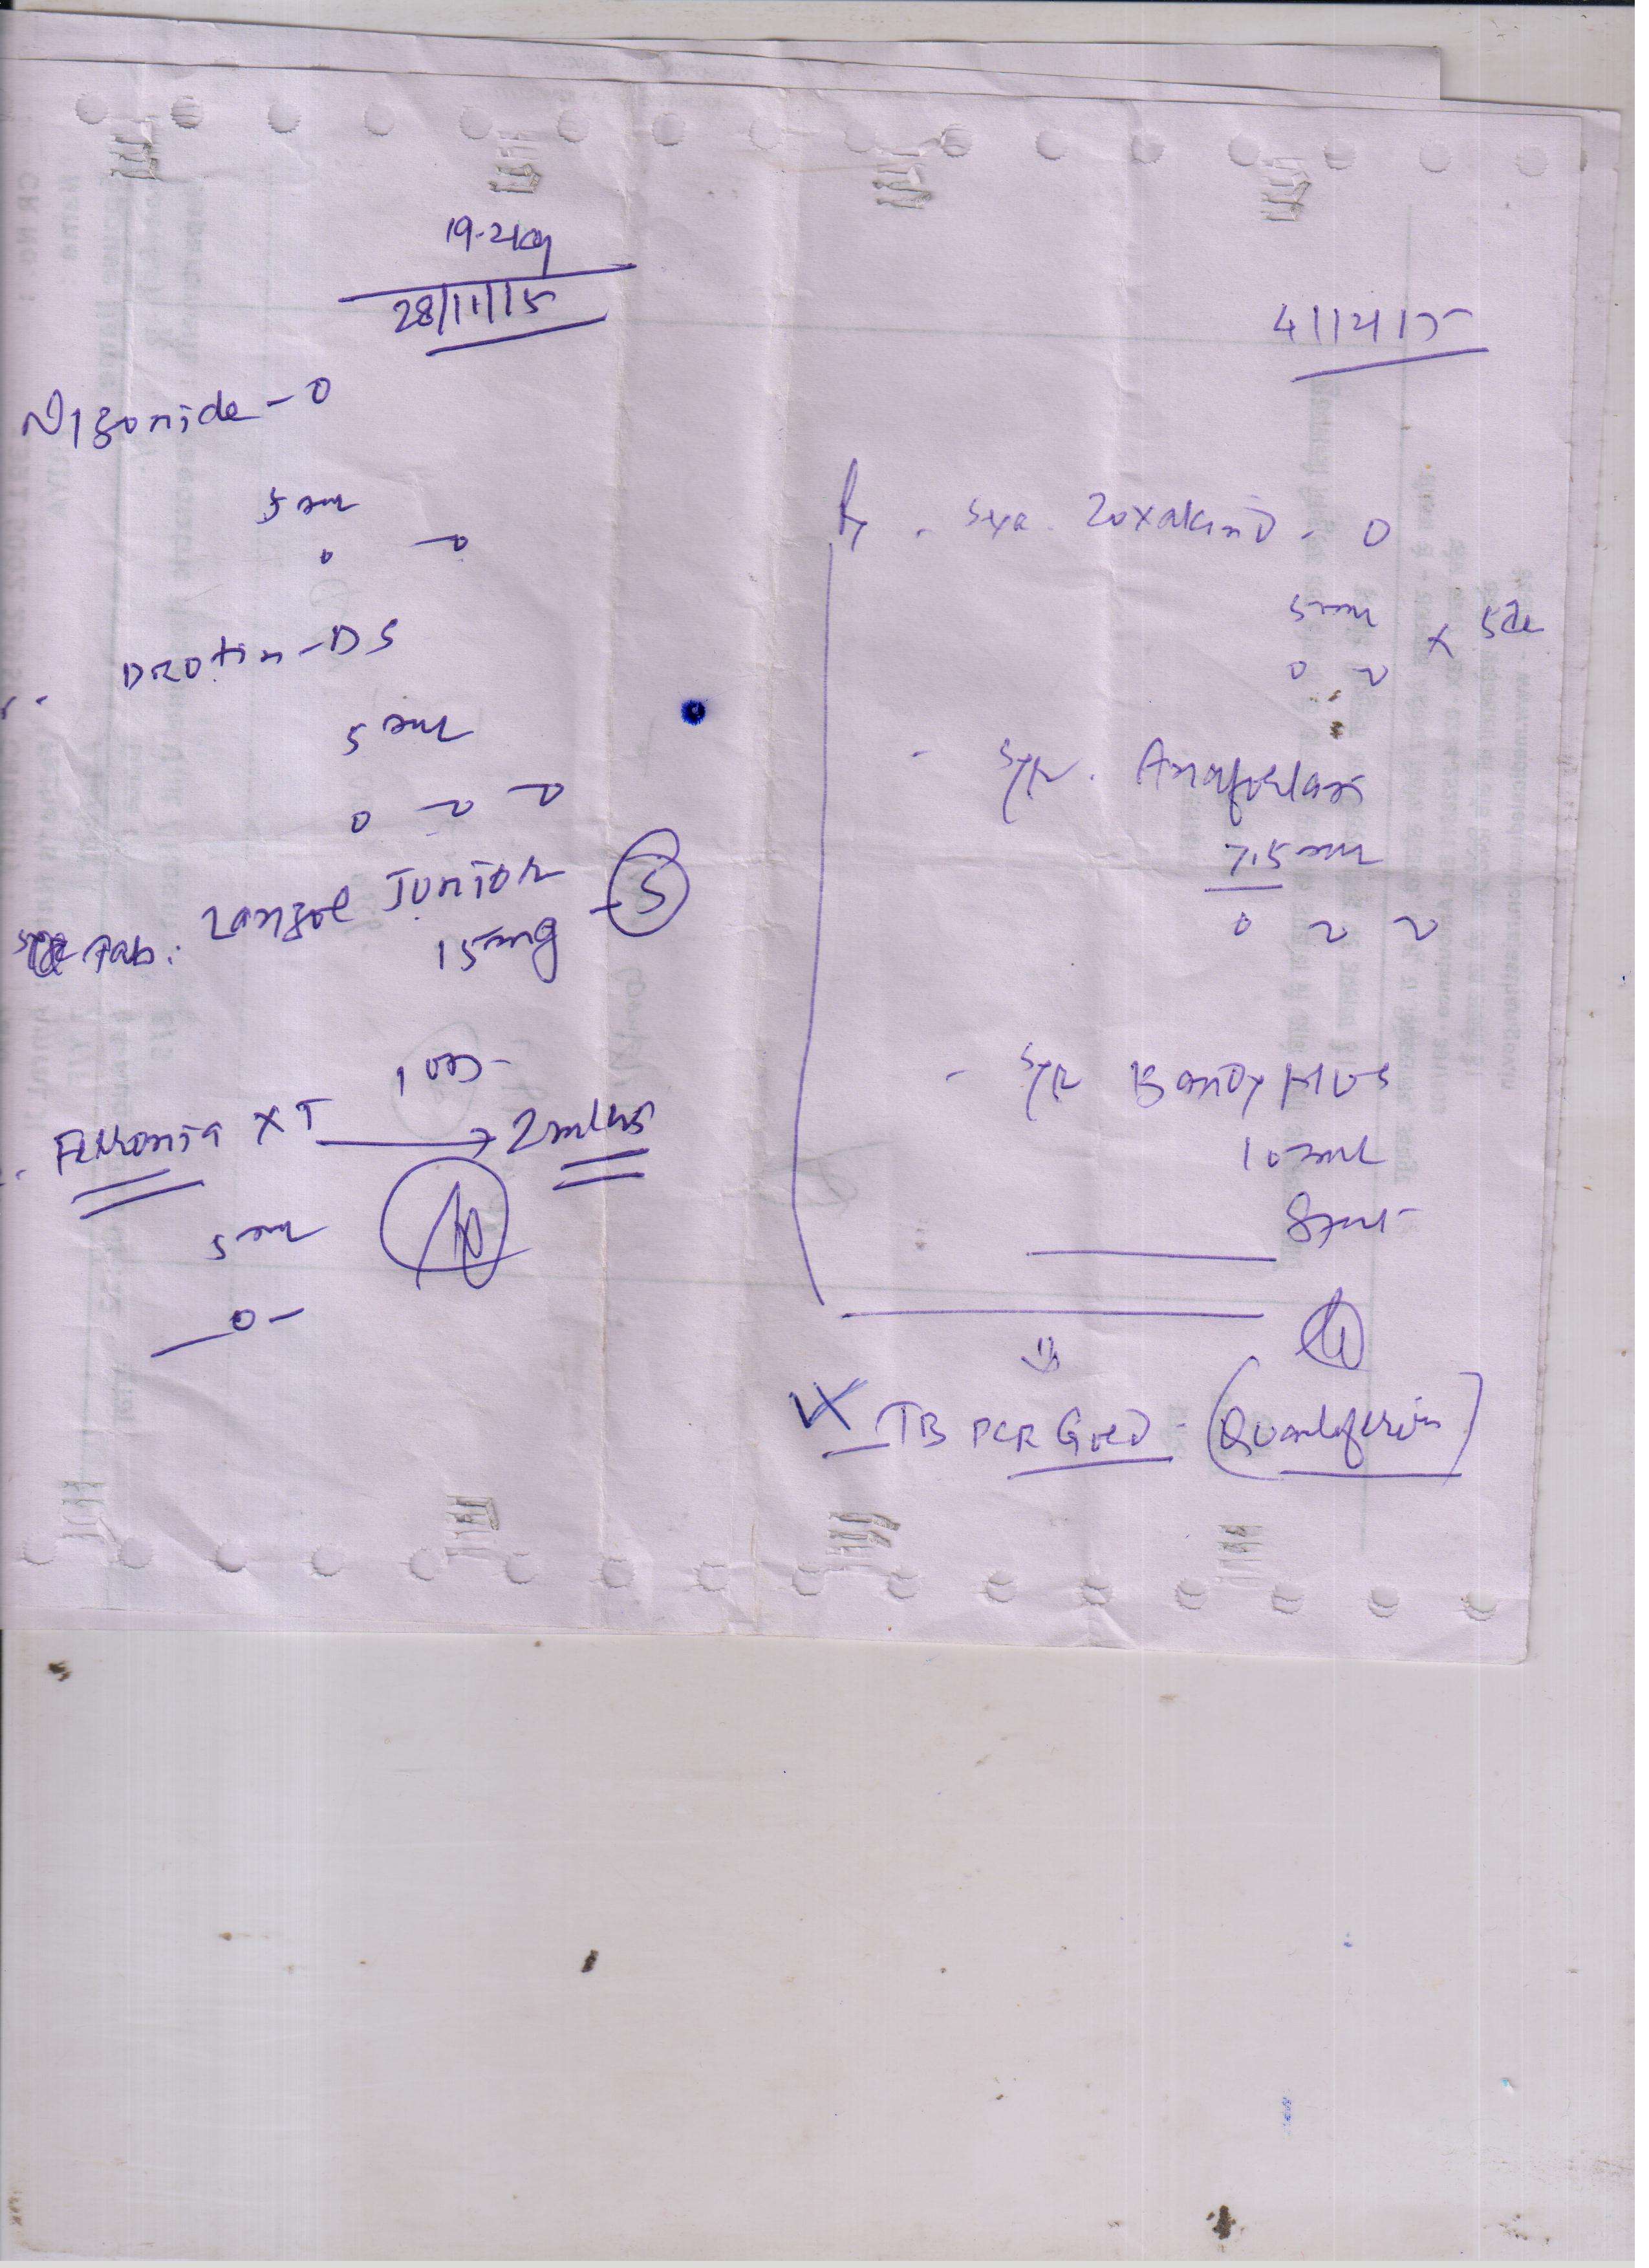 19.2kg
28/11/15
Nizonide-O
5 ml
Drotin-DS
5 ml
Tab. Lanzol Junior
15mg - 5
1 OD
Ferronia XT → 2 mths
5 ml
4/12/15
Rx - Syr. Zoxakind - O
5 ml
x 5d
- Syr. Anaforlan
7.5 ml
- Syr Bandy Plus
10 ml
TB PCR Gold - (Quantiferon)